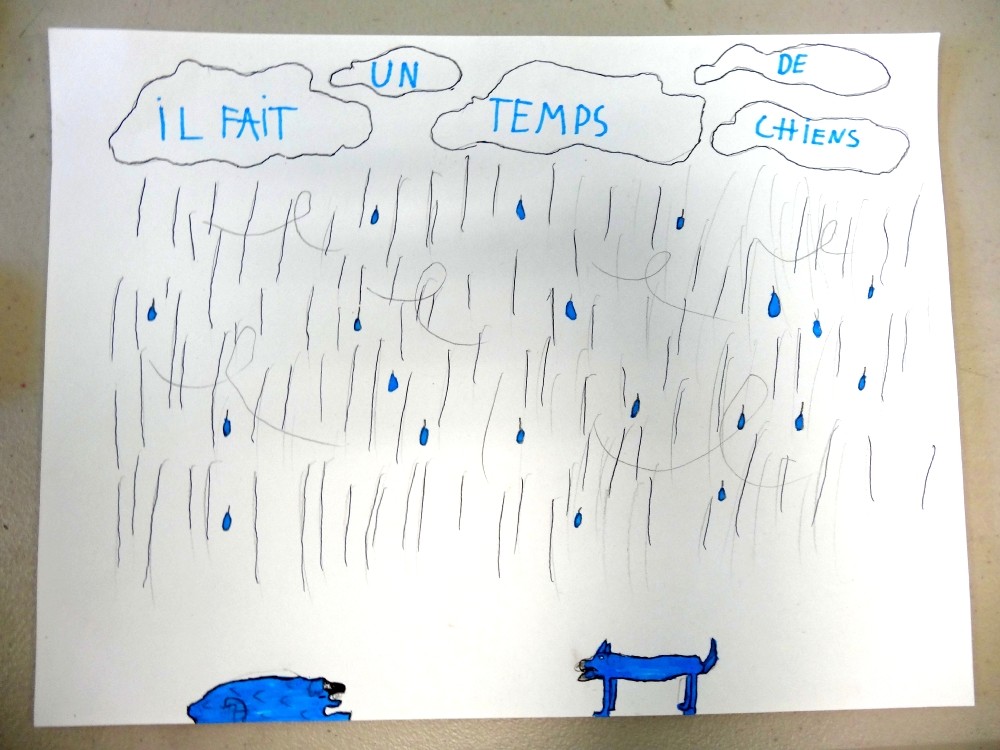 IL FAIT
UN
TEMPS
DE
CHIENS